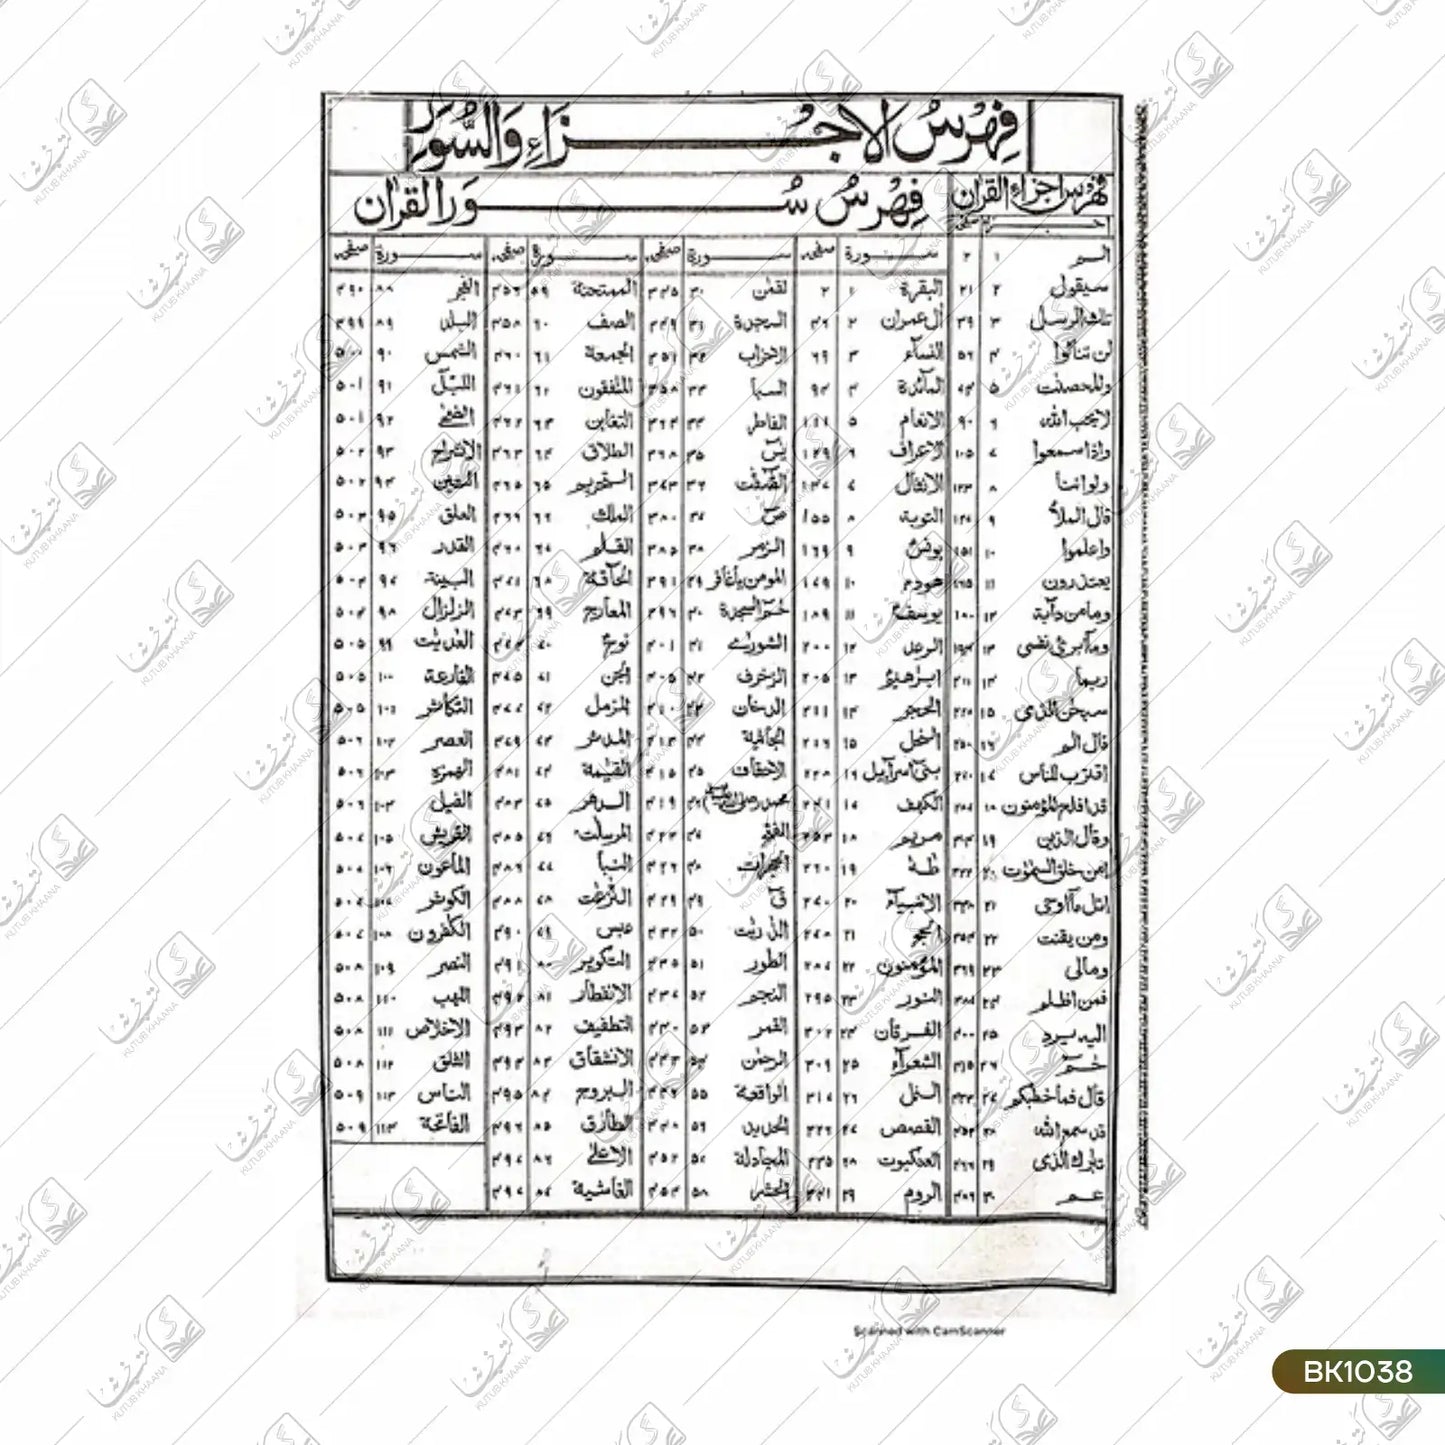 فِهْرِسُ الاَجْزَاءِ وَالسُّوَرِ
فهرس اجزاء القرآن
فِهْرِسُ سُوَرِ القرآن
صفحہ
سورة صفحہ سورة صفحہ سورة صفحہ سورة صفحہ
الم ١ ٢
سيقول ٢ ٢١
تلك الرسل ٣ ٣٩
لن تنالوا ٤ ٥٦
والمحصنت ٥
لا يحب الله ٦ ٩٠
واذا سمعوا ٧ ١٠٥
ولو اننا ٨ ١٢٣
قال الملأ ٩
واعلموا ١٠ ١٥١
يعتذرون ١١ ١٦٥
وما من دآبة ١٢
ومآ ابرئ نفسى ١٣
ربما ١٤
سبحٰن الذى ١٥
قال الم ١٦
اقترب للناس ١٧
قد افلح المؤمنون ١٨
وقال الذين ١٩
امن خلق السمٰوٰت ٢٠
اتل مآ اوحى ٢١
ومن يقنت ٢٢
ومالى ٢٣
فمن اظلم ٢٤
اليه يرد ٢٥
حٰمٓ ٢٦
قال فما خطبكم ٢٧
قد سمع الله ٢٨
تبارك الذى ٢٩
عم ٣٠
البقرة ١ ٢
اٰل عمران ٢ ٤٦
النسآء ٣ ٦٩
المآئدة ٤ ٩٤
الانعام ٥ ١١١
الاعراف ٦ ١٢٩
الانفال ٧
التوبة ٨ ١٥٥
يونس ٩ ١٦٩
هود ١٠ ١٧٩
يوسف ١١ ١٨٩
الرعد ١٢ ٢٠٠
ابرٰهيم ١٣ ٢٠٥
الحجر ١٤ ٢١١
النحل ١٥ ٢١٦
بنىٓ اسرآءيل ١٦ ٢٢٨
الكهف ١٧ ٢٤١
مريم ١٨ ٢٥٣
طٰهٰ ١٩ ٢٦٠
الانبيآء ٢٠ ٢٧٠
الحج ٢١ ٢٧٨
المؤمنون ٢٢ ٢٨٧
النور ٢٣ ٢٩٥
الفرقان ٢٤
الشعرآء ٢٥ ٣٠٩
النمل ٢٦ ٣١٧
القصص ٢٧ ٣٢٦
العنكبوت ٢٨ ٣٣٥
الروم ٢٩ ٣٤١
لقمٰن ٣٠ ٣٤٥
السجدة ٣١ ٣٤٩
الاحزاب ٣٢ ٣٥١
السبا ٣٣ ٣٥٨
الفاطر ٣٤
يٰسٓ ٣٥ ٣٦٨
الصّٰٓفّٰت ٣٦ ٣٧٣
صٓ ٣٧ ٣٨٠
الزمر ٣٨ ٣٨٥
المومن يا غافر ٣٩ ٣٩١
حٰمٓ السجدة ٤٠ ٣٩٦
الشورىٰ ٤١ ٤٠١
الزخرف ٤٢ ٤٠٥
الدخان ٤٣ ٤١٠
الجاثية ٤٤ ٤١٣
الاحقاف ٤٥ ٤١٥
محمد ٤٦ ٤١٩
الفتح ٤٧ ٤٢٣
الحجرات ٤٨ ٤٢٦
قٓ ٤٩ ٤٢٩
الذٰريٰت ٥٠ ٤٣٢
الطور ٥١ ٤٣٥
النجم ٥٢ ٤٣٧
القمر ٥٣ ٤٤٠
الرحمٰن ٥٤ ٤٤٣
الواقعة ٥٥
الحديد ٥٦
المجادلة ٥٧ ٤٥٢
الحشر ٥٨ ٤٥٤
الممتحنة ٥٩ ٤٥٦
الصف ٦٠ ٤٥٨
الجمعة ٦١ ٤٦٠
المنٰفقون ٦٢ ٤٦١
التغابن ٦٣ ٤٦٢
الطلاق ٦٤ ٤٦٣
التحريم ٦٥ ٤٦٥
الملك ٦٦
القلم ٦٧
الحآقة ٦٨ ٤٧١
المعارج ٦٩ ٤٧٣
نوح ٧٠ ٤٧٤
الجن ٧١
المزمل ٧٢ ٤٧٧
المدثر ٧٣ ٤٧٩
القيٰمة ٧٤ ٤٨١
الدهر ٧٥
المرسلٰت ٧٦ ٤٨٥
النبا ٧٧ ٤٨٦
النّٰزعٰت ٧٨ ٤٨٨
عبس ٧٩ ٤٩٠
التكوير ٨٠ ٤٩١
الانفطار ٨١ ٤٩٢
التطفيف ٨٢ ٤٩٣
الانشقاق ٨٣ ٤٩٤
البروج ٨٤ ٤٩٥
الطارق ٨٥ ٤٩٦
الاعلىٰ ٨٦ ٤٩٧
الغاشية ٨٧ ٤٩٧
الفجر ٨٨
البلد ٨٩ ٤٩٩
الشمس ٩٠ ٥٠٠
الليل ٩١ ٥٠١
الضحىٰ ٩٢ ٥٠١
الانشراح ٩٣ ٥٠٢
التين ٩٤ ٥٠٢
العلق ٩٥ ٥٠٣
القدر ٩٦ ٥٠٣
البينة ٩٧
الزلزال ٩٨ ٥٠٤
العٰديٰت ٩٩ ٥٠٥
القارعة ١٠٠ ٥٠٥
التكاثر ١٠١ ٥٠٥
العصر ١٠٢ ٥٠٦
الهمزة ١٠٣ ٥٠٦
الفيل ١٠٤ ٥٠٦
القريش ١٠٥ ٥٠٧
الماعون ١٠٦ ٥٠٧
الكوثر ١٠٧ ٥٠٧
الكٰفرون ١٠٨ ٥٠٧
النصر ١٠٩ ٥٠٨
اللهب ١١٠ ٥٠٨
الاخلاص ١١١ ٥٠٨
الفلق ١١٢ ٥٠٨
الناس ١١٣ ٥٠٩
الفاتحة ١١٤ ٥٠٩
Scanned with CamScanner
BK1038